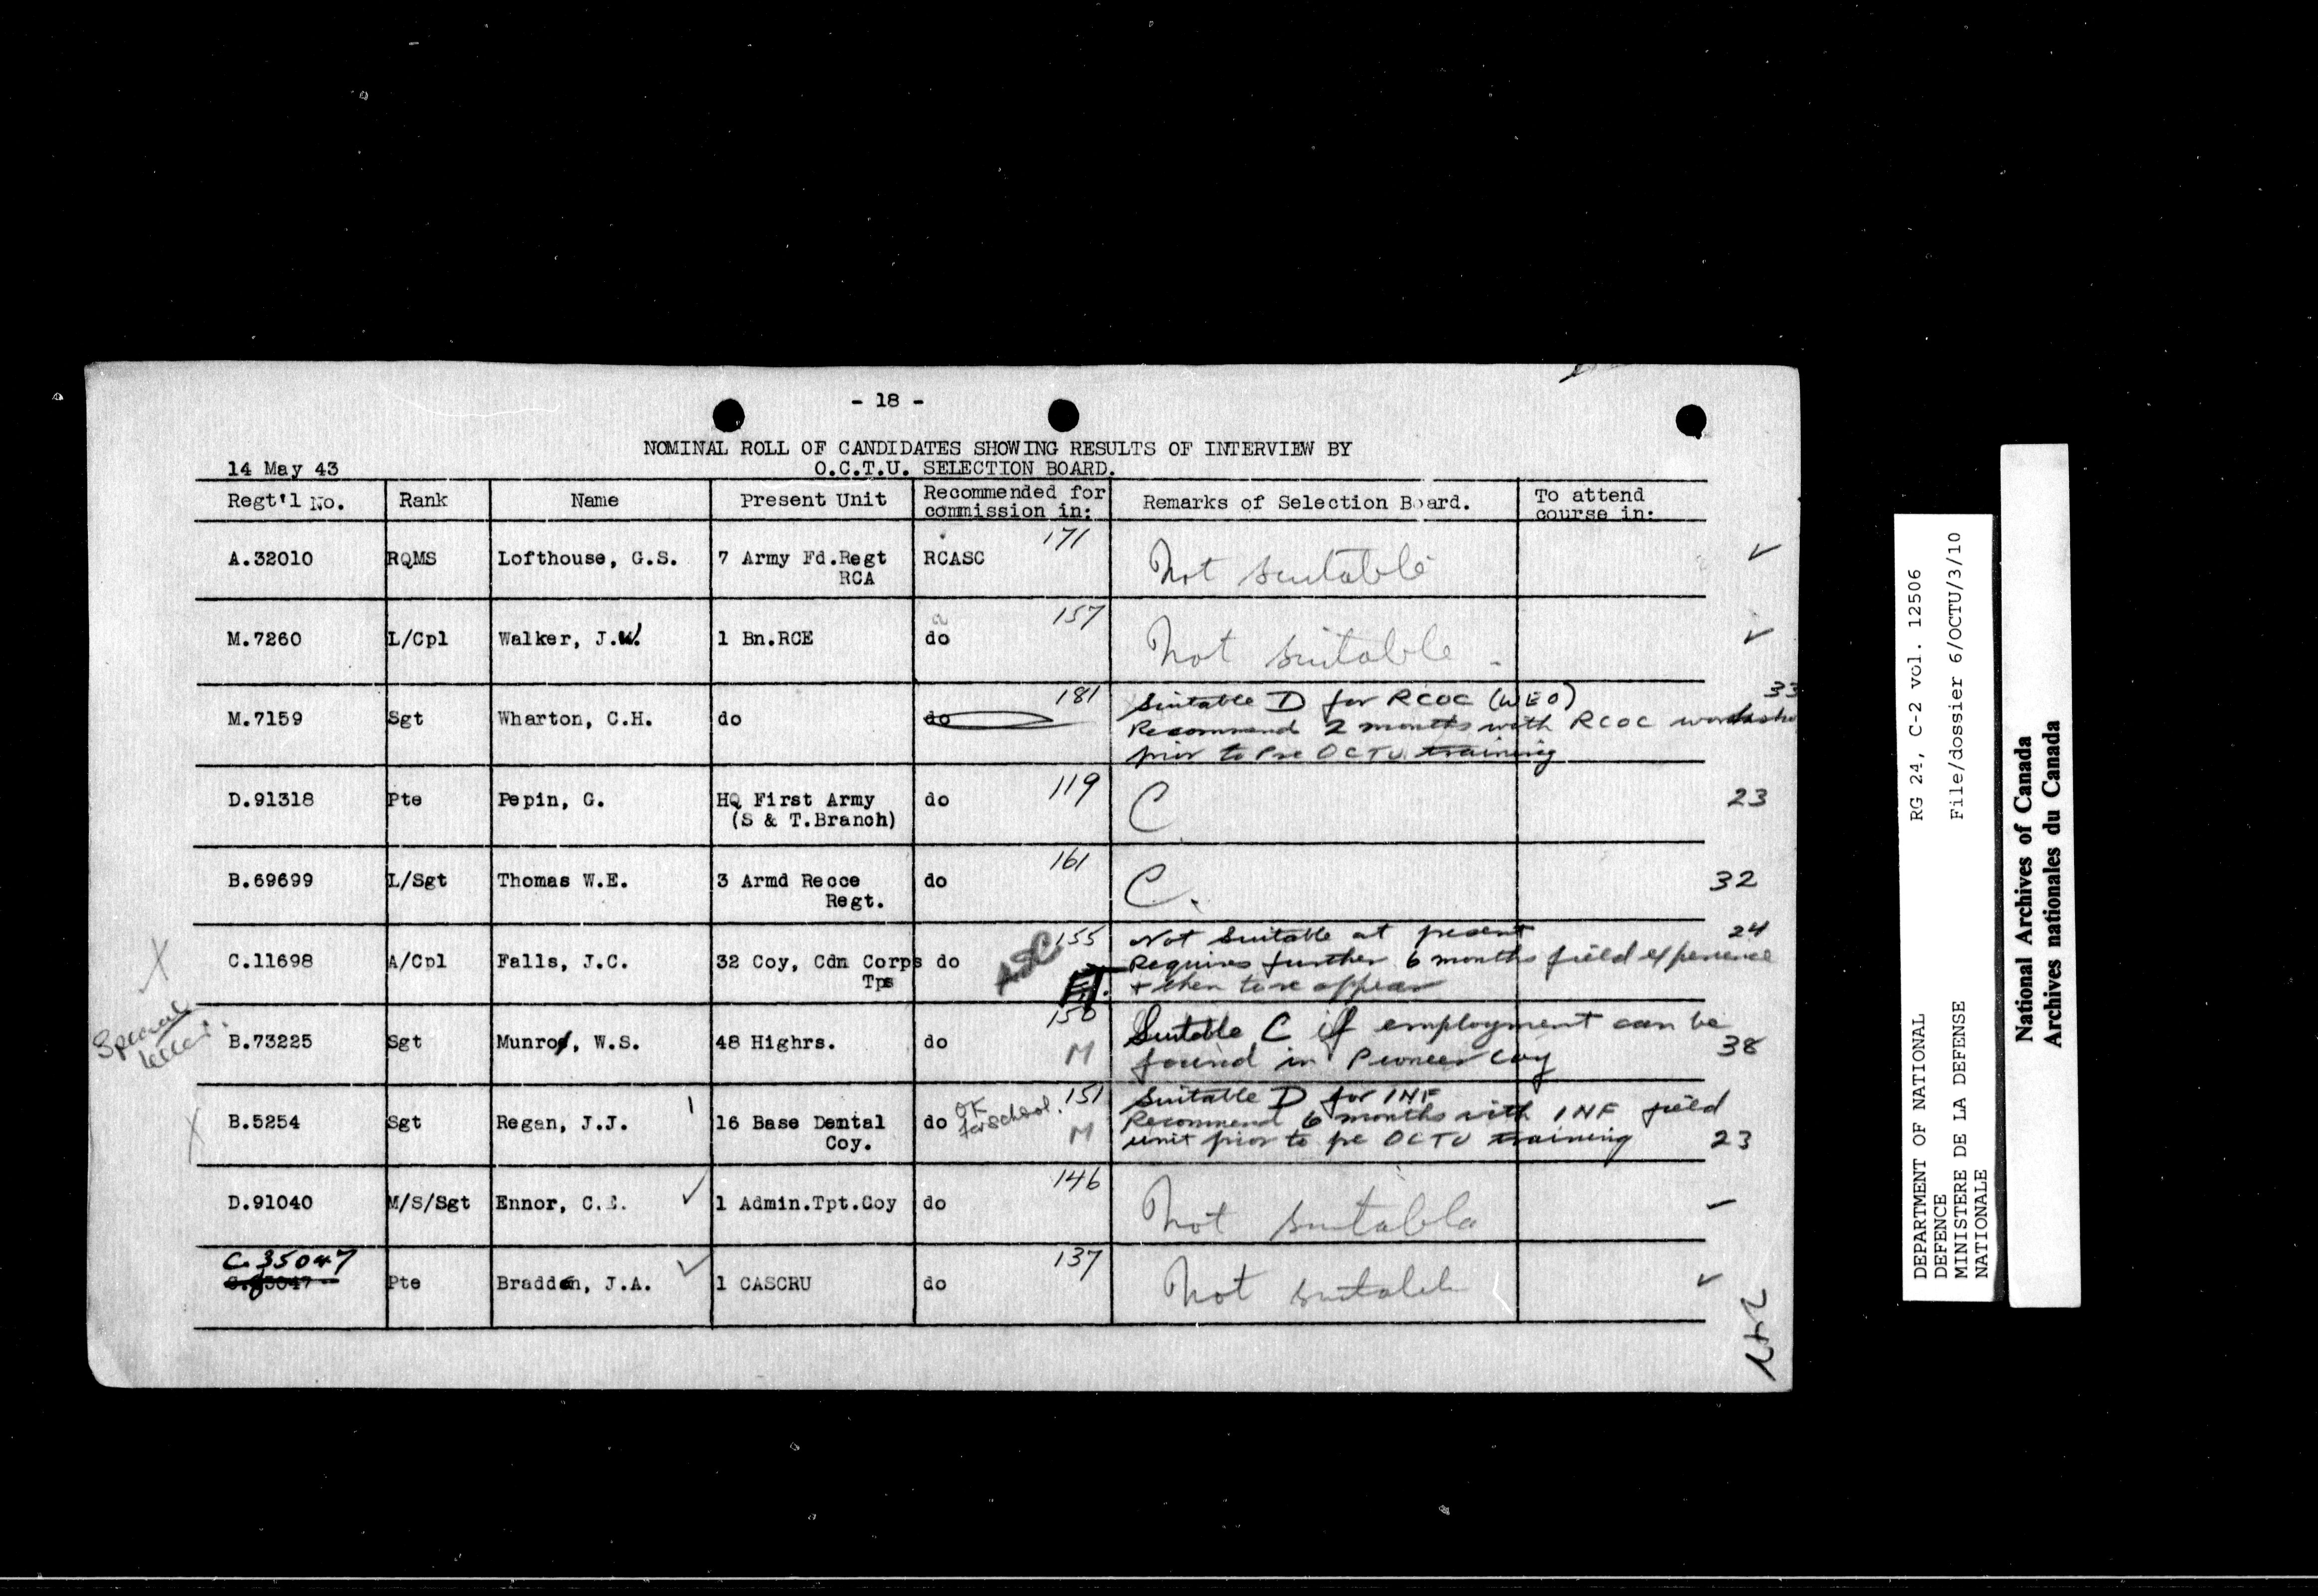 - 18 -
NOMINAL ROLL OF CANDIDATES SHOWING RESULTS OF INTERVIEW BY
14 May 43 O.C.T.U. SELECTION BOARD.
Regt'l No. Rank Name Present Unit Recommended for commission in: Remarks of Selection Board. To attend course in:
171
A.32010 RQMS Lofthouse, G.S. 7 Army Fd.Regt RCASC Not suitable
RCA
157
M.7260 L/Cpl Walker, J.W. 1 Bn.RCE do Not suitable
181 Suitable D for RCOC (WEO) 33
M.7159 Sgt Wharton, C.H. do do Recommend 2 months with RCOC worksho
prior to Pre OCTU training
119
D.91318 Pte Pepin, G. HQ First Army do C. 23
(S & T.Branch)
161
B.69699 L/Sgt Thomas W.E. 3 Armd Recce do C. 32
Regt.
155 Not Suitable at present 24
C.11698 A/Cpl Falls, J.C. 32 Coy, Cdn Corps do ASC Requires further 6 months field experience
Tps + then to re appear
Special
150 Suitable C if employment can be
B.73225 Sgt Munro, W.S. 48 Highrs. do M found in Pioneer Coy 38
151 Suitable D for INF
B.5254 Sgt Regan, J.J. 16 Base Dental do OK for school. Recommend 6 months with INF field
Coy. M unit prior to pre OCTU training 23
146
D.91040 M/S/Sgt Ennor, C.E. 1 Admin.Tpt.Coy do Not suitable
C.35047 137
Pte Bradden, J.A. 1 CASCRU do Not suitable
DEPARTMENT OF NATIONAL DEFENCE RG 24, C-2 vol. 12506
MINISTERE DE LA DEFENSE NATIONALE File/dossier 6/OCTU/3/10
National Archives of Canada
Archives nationales du Canada